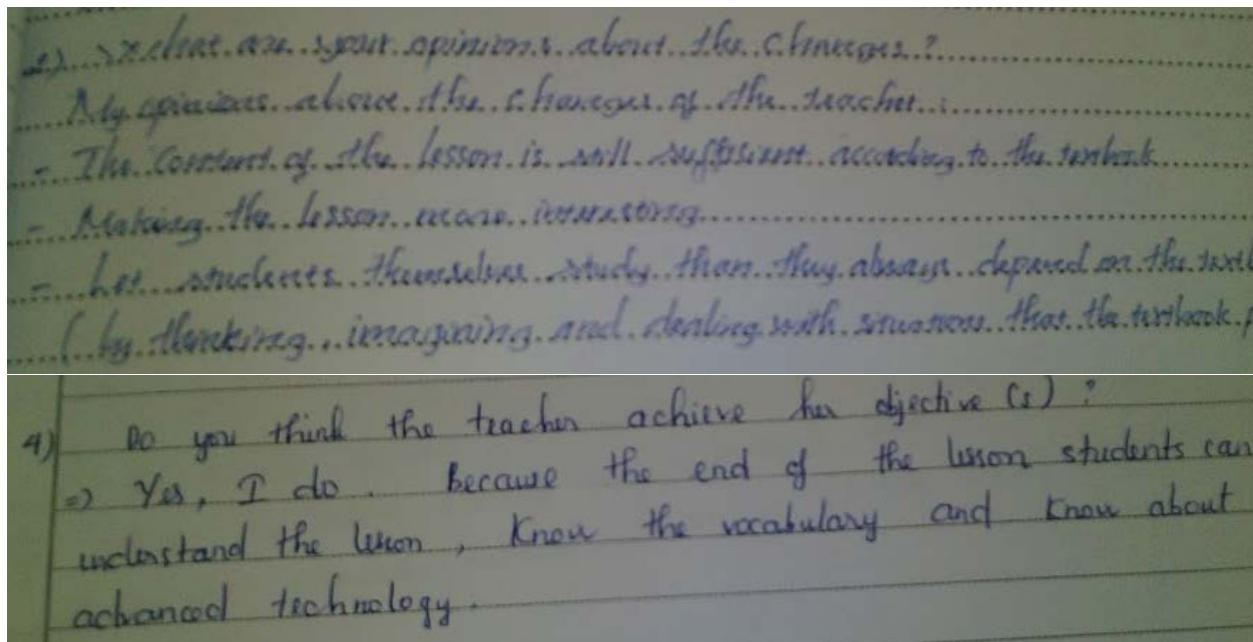 2) What are your opinions about the changes?
My opinions about the changes of the teacher:
- The content of the lesson is still sufficient according to the textbook
- Making the lesson more interesting
- Let students themselves study than they always depend on the
( by thinking, imagining and dealing with situations that the textbook
4) Do you think the teacher achieve her objective (s) ?
=> Yes, I do. Because the end of the lesson students can
understand the lesson, know the vocabulary and know about
advanced technology.